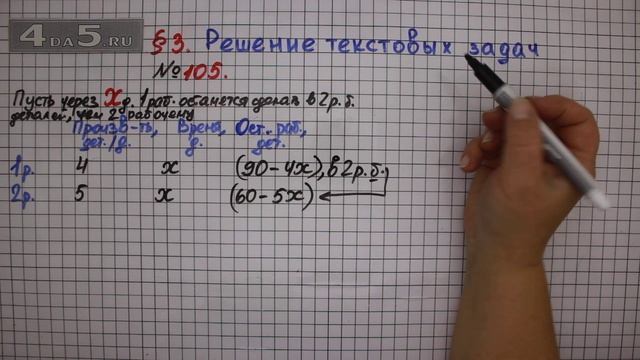 4DA5.RU
§3. Решение текстовых задач
№105.
Пусть через x д. 1 раб. останется сделать в 2 р. б.
деталей, чем 2 рабочему
Произв-ть, Время, Ост. раб.,
дет./д. д. дет.
1р. 4 x (90-4x), в 2 р. б.
2р. 5 x (60-5x)